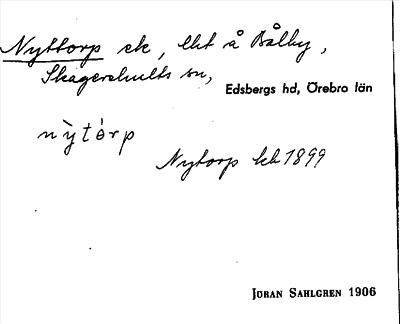 Nyttorp ek, lht å Bålby,
Skagershults sn,
Edsbergs hd, Örebro län
nỳtórp
Nytorp kb 1899
JÖRAN SAHLGREN 1906